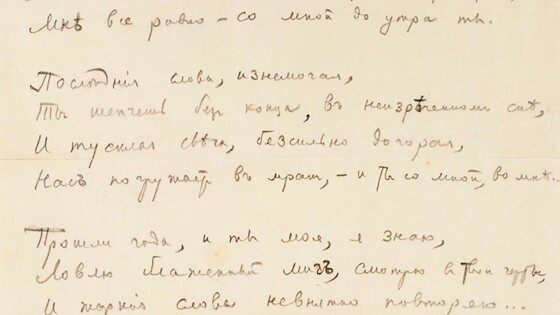 Мнѣ все равно – со мной до утра ты.
Послѣднія слова, изнемогая,
Ты шепчешь безъ конца, въ неизреченномъ снѣ,
И тусклая свѣча, безсильно догорая,
Насъ погружаетъ въ мракъ, – и ты со мной, во мнѣ..
Прошли года, и ты моя, я знаю,
Ловлю блаженный мигъ, смотрю въ твои черты,
И жаркія слова невнятно повторяю...